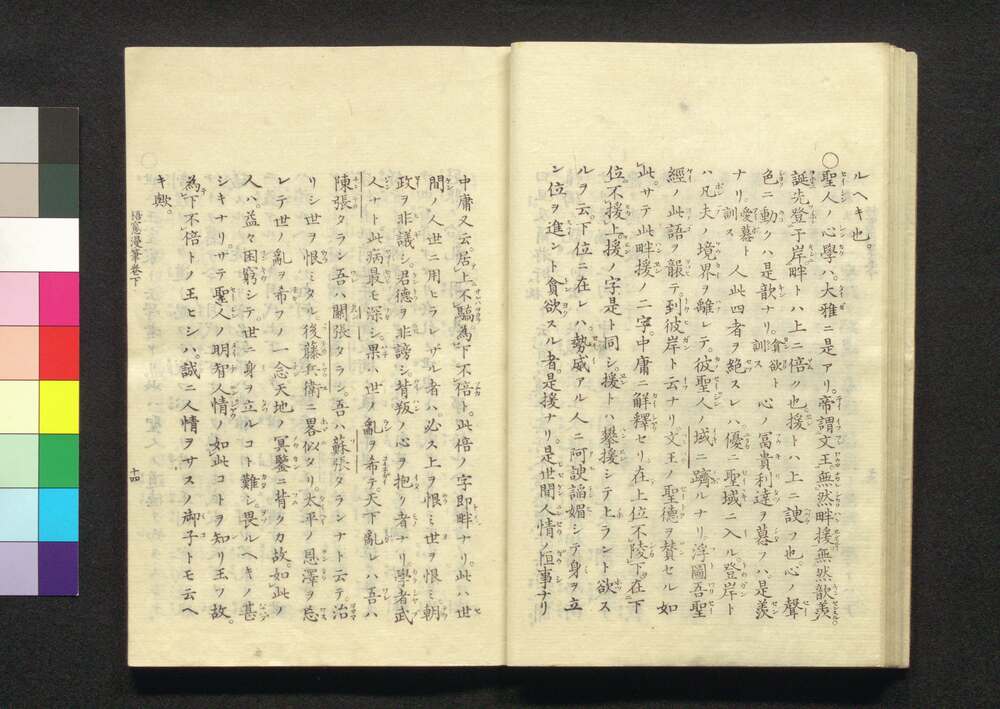 ルヘキ也。
○聖人ノ心學ハ。大雅ニ是アリ。帝謂文王。無然畔援無然歆羨
誕先登于岸畔トハ上ニ倍ク也。援トハ上ニ諛フ也。心ノ聲
色ニ動クハ是歆ナリ。貪欲ト訓ス心ノ冨貴利達ヲ慕フハ。是羨
ナリ愛慕ト訓ス人此四者ヲ絶スレハ。優ニ聖域ニ入ル登岸ト
ハ凡夫ノ境界ヲ離レテ。彼聖人ノ域ニ躋ルナリ浮圖吾聖
經ノ此語ヲ竊テ到彼岸ト云ナリ。文王ノ聖德ヲ賛セル如
此。サテ此畔援ノ二字。中庸ニ解釋セリ在上位不陵下。在下
位不援上。援ノ字是ト同シ援トハ攀援シテ上ラント欲ス
ルヲ云。下位ニ在レハ勢威アル人ニ阿諛謟媚シテ身ヲ立
ン位ヲ進ント貪欲スル者是援ナリ。是世間人情ノ恒事ナリ
中庸又云。居上不驕為下不倍ト。此倍ノ字即畔ナリ。此ハ世
間ノ人世ニ用ヒラレザル者ハ。必ス上ヲ恨ミ世ヲ恨ミ朝
政ヲ非議シ。君德ヲ非謗シ。背叛ノ心ヲ抱ク者ナリ學者武
人ナト此病最モ深シ。果ハ世ノ亂ヲ希テ。天下亂レハ吾ハ
陳張タラン吾ハ關張タラン。吾ハ蘇張タランナト云テ。治
リシ世ヲ恨ミタル後藤兵衛ニ畧似タリ太平ノ恩澤ヲ忘
レテ世ノ亂ヲ希フノ一念天地ノ冥鑒ニ背クカ故。如此ノ
人ハ。益々困窮シテ。世ニ身ヲ立ルコト難シ。畏ルヘキノ甚
シキナリ。サテ聖人ノ明智人情ノ如此コトヲ知リ玉フ故。
為下不倍トノ玉ヒシハ。誠ニ人情ヲサスノ御子トモ云ヘ
キ歟。
梧窻漫筆卷下
十四